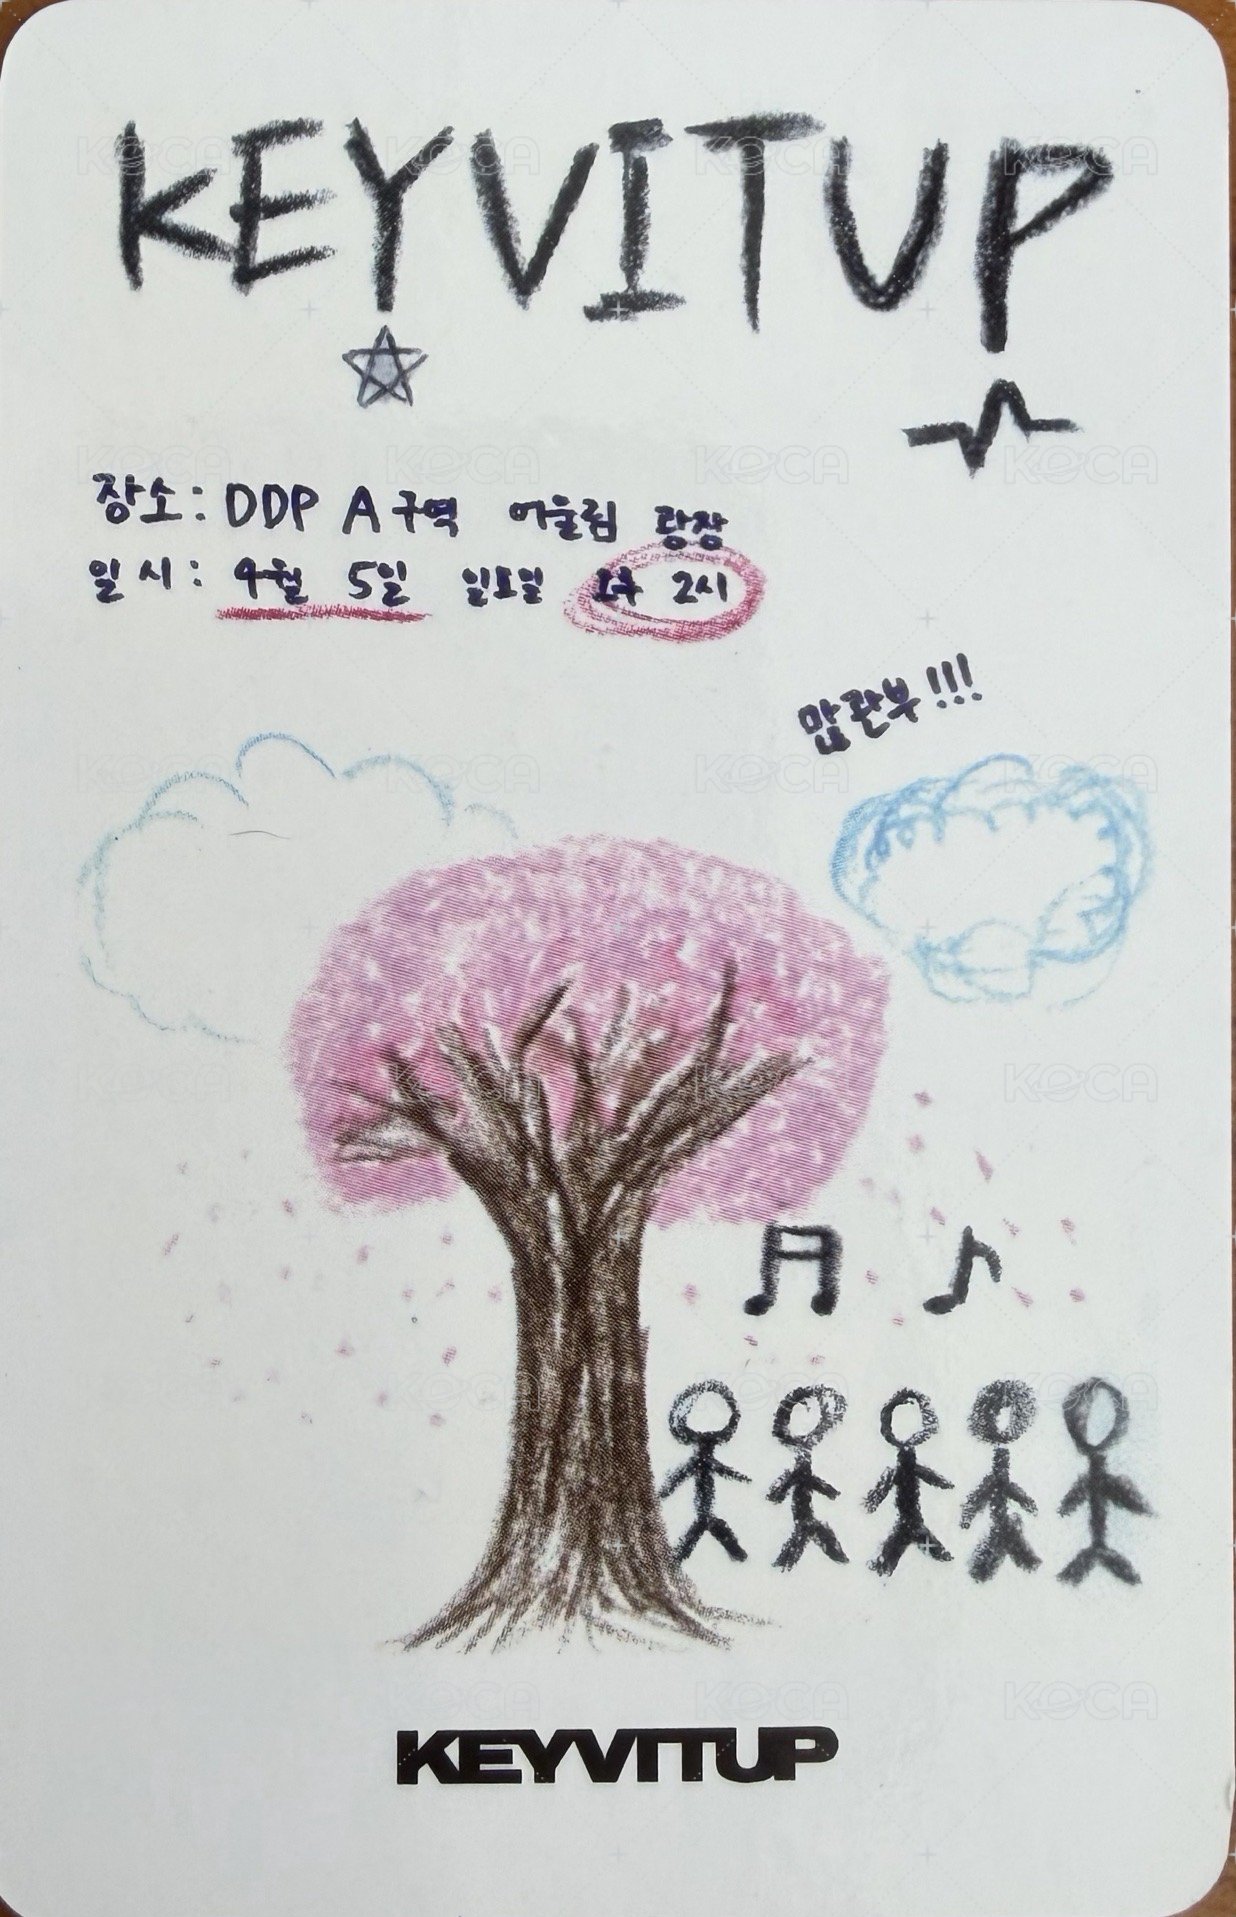 KEYVITUP
장소: DDP A구역 어울림 광장
일시: 9월 5일 일요일 오후 2시
많관부!!!
KEYVITUP
KOCA